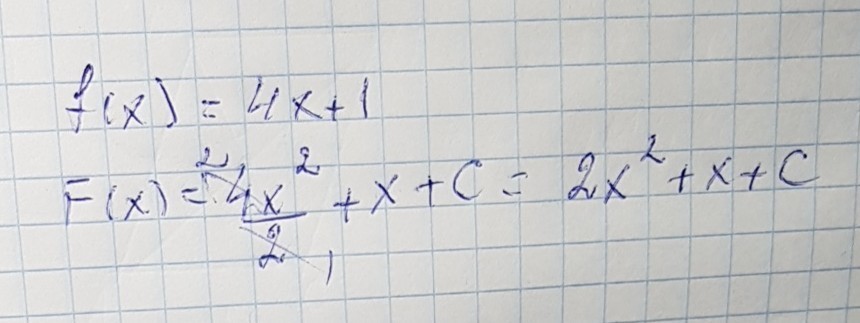 f(x) = 4x+1
F(x) = 4x²/2 + x + C = 2x² + x + C